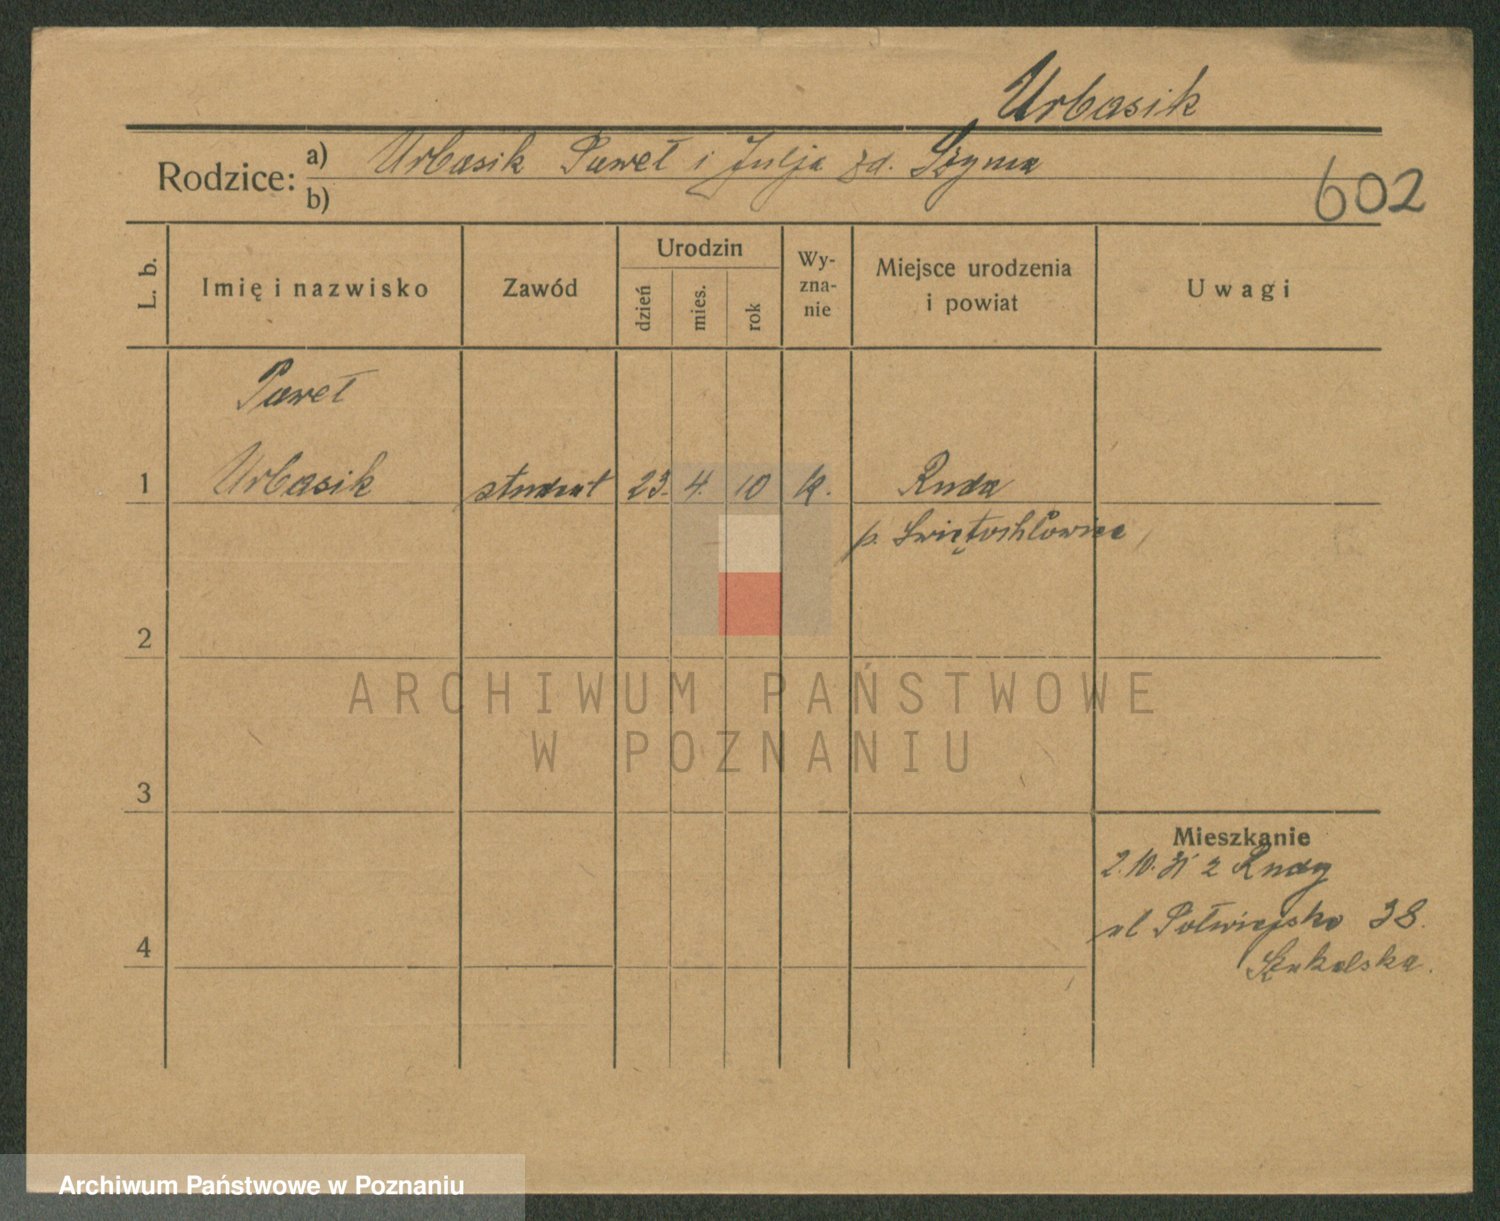 Urbasik
Rodzice:
a) Urbasik Paweł i Julja zd. Szyma
b)
602
L. b.
Imię i nazwisko
Zawód
Urodzin
dzień
mies.
rok
Wy-
zna-
nie
Miejsce urodzenia
i powiat
Uwagi
Paweł
1 Urbasik student 23. 4. 10 k. Ruda
p. Świętochłowice
2
ARCHIWUM PAŃSTWOWE
W POZNANIU
3
Mieszkanie
2.10.31 z Rudy
ul Półwiejska 38.
4
Szukalska.
Archiwum Państwowe w Poznaniu